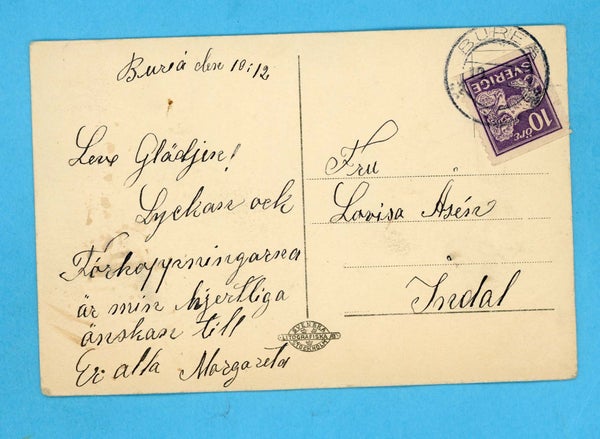 Bureå den 10:12
Leve Glädjen!
Lyckan och
Förhoppningarna
är min hjertliga
önskan till
Er alla Margareta
Fru
Lovisa Åsén
Indal
BUREÅ
SVERIGE
10 ÖRE
SVENSKA
LITOGRAFISKA AB
STOCKHOLM